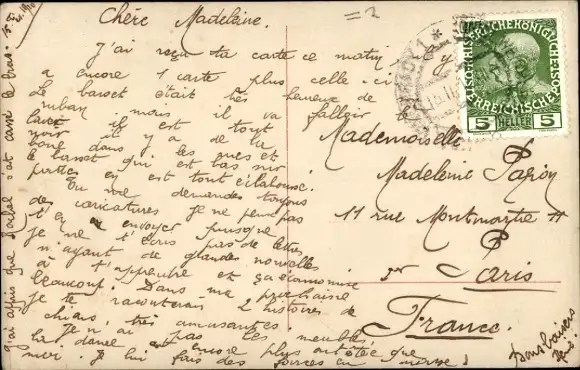 Chère Madelaine.
J'ai reçu ta carte ce matin
a encore 1 carte plus celle-ci
Le basset était très heureux de
ruban mais il va falloir le
laver il est tout
noir il y a de la
boue dans les rues et
le basset qui est bas sur
pattes en est tout éclaboussé.
Tu me demandes toujours
des caricatures je ne peux pas
t'en envoyer puisque
je ne t'écris pas de lettres
n'ayant de grandes nouvelles
à t'apprendre et ça économise
beaucoup. Dans ma prochaine
je te raconterai 2 histoires de
chiens très amusantes
Je n'ai pas les meubles
encore plus que
moi. Je lui fais des farces
Mademoiselle
Madeleine
11 rue Montmartre 11
Paris
France.
Bons baisers
j'ai appris que Rachel s'est cassé le bras.
KAISERLICHE KÖNIGLICHE ÖSTERREICHISCHE POST
5 HELLER 5